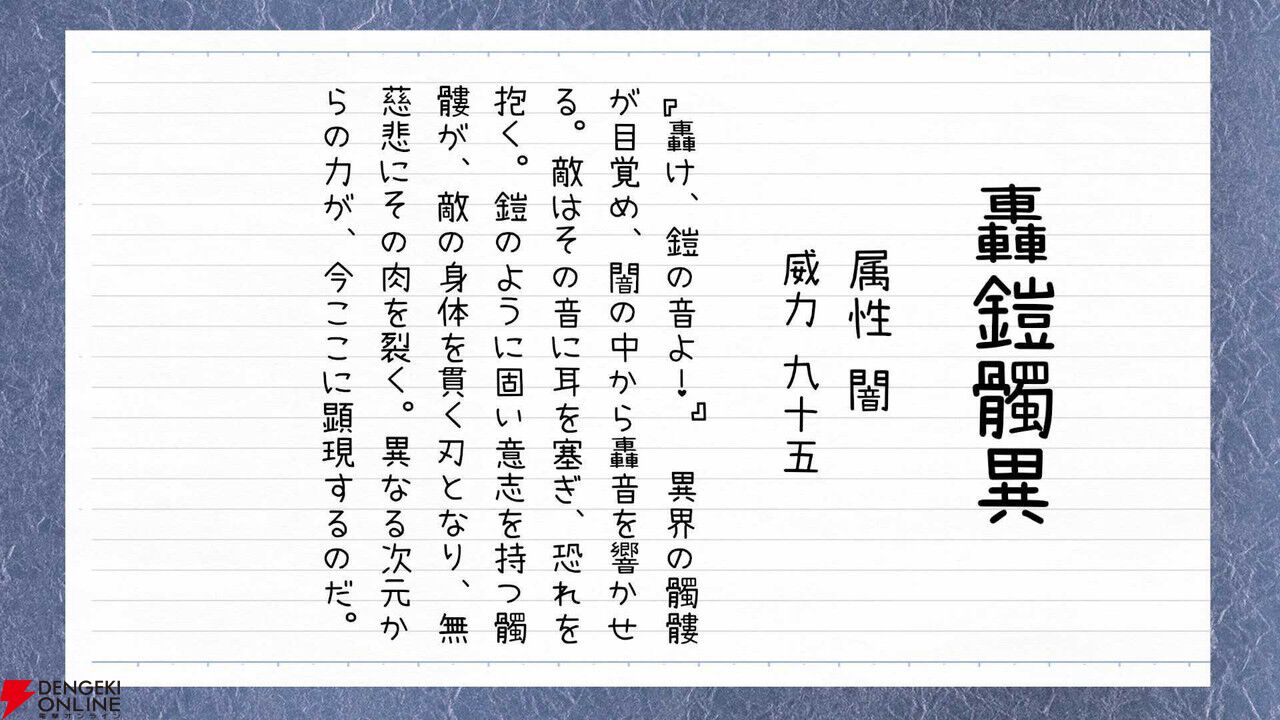 轟鎧髑異
属性 闇
威力 九十五
『轟け、鎧の音よ！』 異界の髑髏
が目覚め、闇の中から轟音を響かせ
る。敵はその音に耳を塞ぎ、恐れを
抱く。鎧のように固い意志を持つ髑
髏が、敵の身体を貫く刃となり、無
慈悲にその肉を裂く。異なる次元か
らの力が、今ここに顕現するのだ。
DENGEKI
ONLINE
電撃オンライン